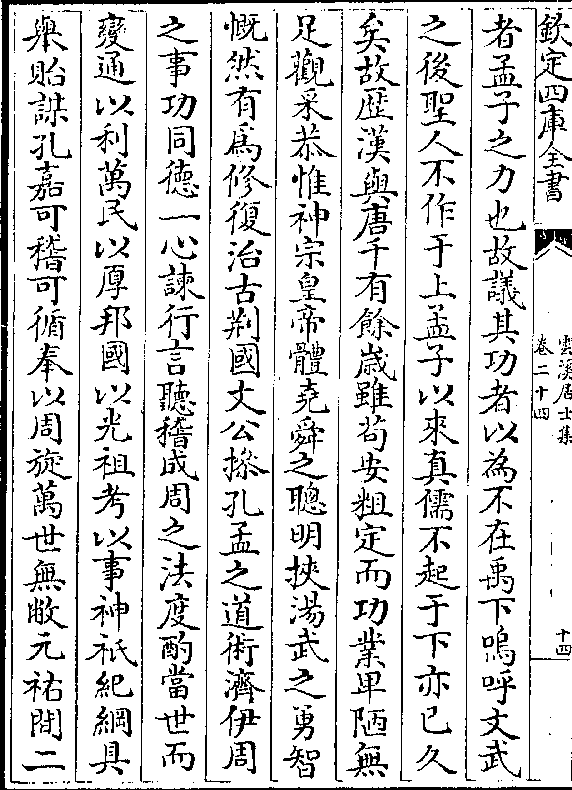 欽定四庫全書
雲溪居士集
卷二十四
十四
者孟子之力也故議其功者以為不在禹下嗚呼文武
之後聖人不作于上孟子以來真儒不起于下亦已久
矣故歴漢與唐千有餘歳雖茍安粗定而功業卑陋無
足觀采恭惟神宗皇帝體堯舜之聰明挾湯武之勇智
慨然有為修復治古荆國文公操孔孟之道術濟伊周
之事功同德一心諫行言聽稽成周之法度酌當世而
變通以利萬民以厚邦國以光祖考以事神祇紀綱具
舉貽謀孔嘉可稽可循奉以周旋萬世無敝元祐間二